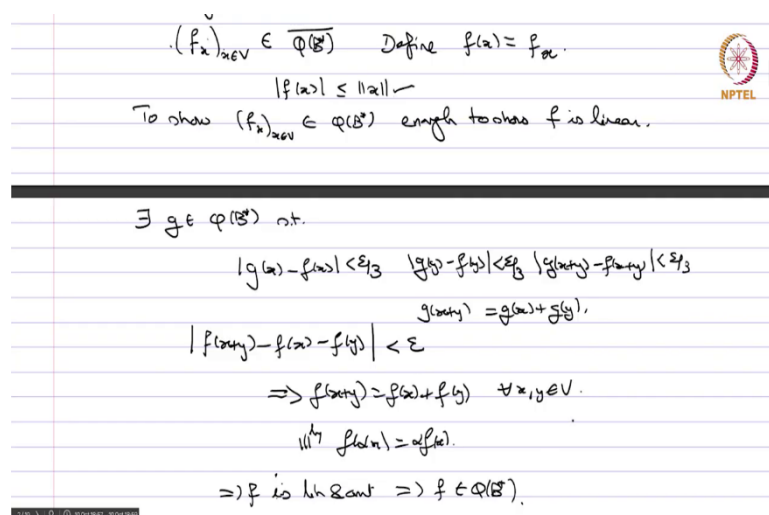 (f_x)_{x∈V} ∈ \overline{φ(B*)} Define f(x) = f_x.
|f(x)| ≤ ||x|| ✓
To show (f_x)_{x∈V} ∈ φ(B*) enough to show f is linear.
NPTEL
∃ g ∈ φ(B*) s.t.
|g(x)-f(x)| < ε/3 |g(y)-f(y)| < ε/3 |g(x+y)-f(x+y)| < ε/3
g(x+y) = g(x)+g(y).
|f(x+y)-f(x)-f(y)| < ε
=> f(x+y) = f(x)+f(y) ∀ x,y ∈ V.
|||ly f(αx) = αf(x).
=> f is lin & cont => f ∈ φ(B*).